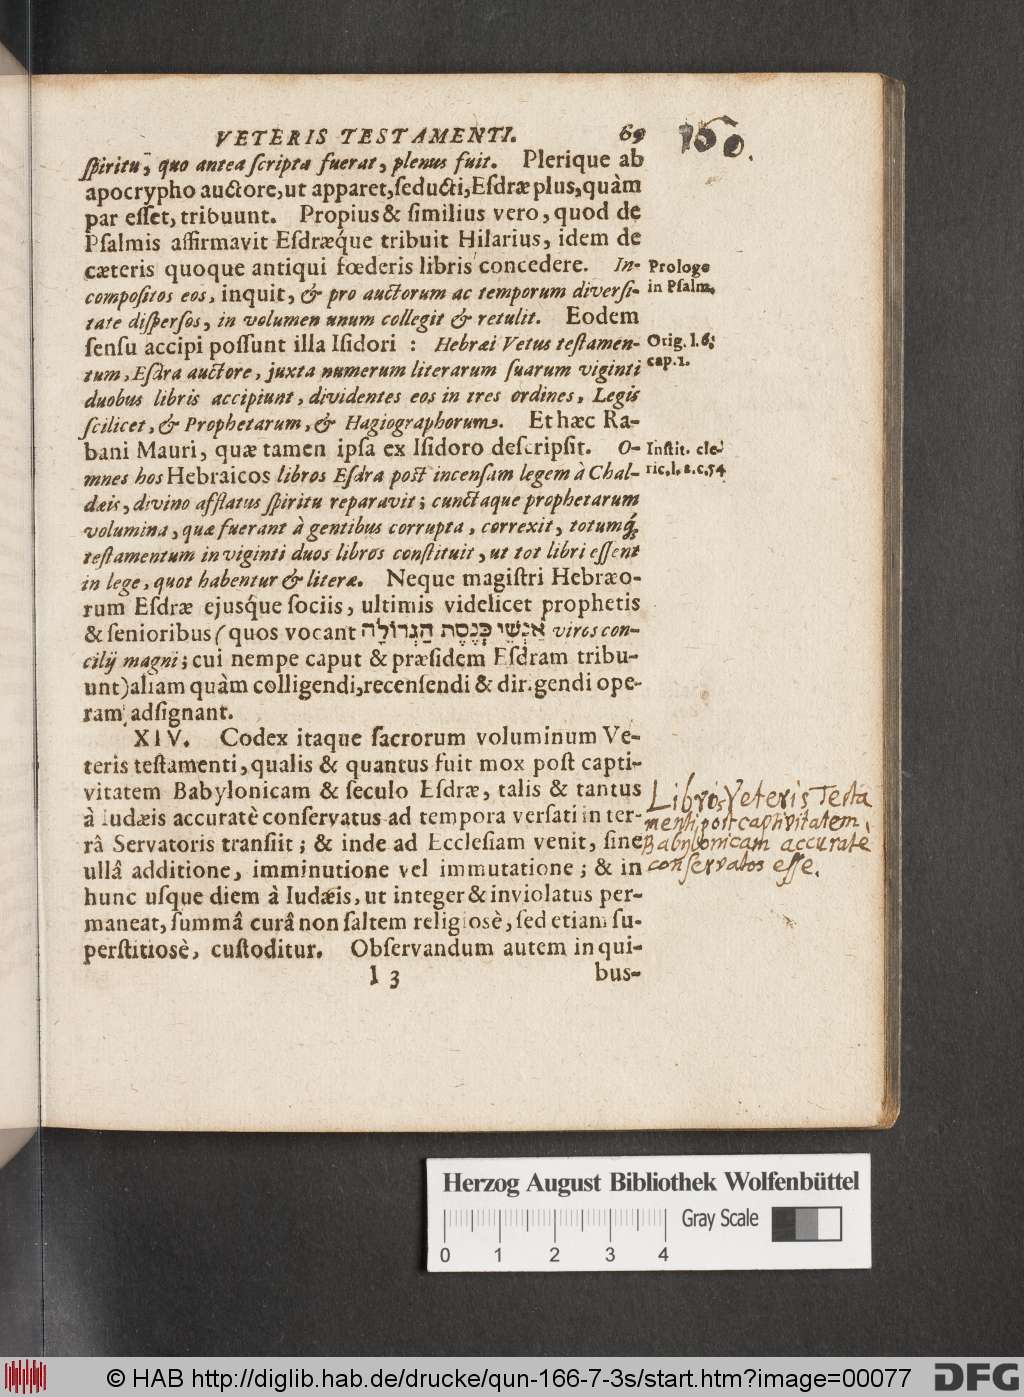 VETERIS TESTAMENTI. 69
150.
ſpiritu, quo antea ſcripta fuerat, plenus fuit. Plerique ab
apocrypho auctore, ut apparet, ſeducti, Eſdræ plus, quàm
par eſſet, tribuunt. Propius & ſimilius vero, quod de
Pſalmis affirmavit Eſdræq́ue tribuit Hilarius, idem de
cæteris quoque antiqui fœderis libris concedere. In-
Prologo
compoſitos eos, inquit, & pro auctorum ac temporum diverſi-
in Pſalm.
tate diſperſos, in volumen unum collegit & retulit. Eodem
ſenſu accipi poſſunt illa Iſidori : Hebræi Vetus teſtamen-
Orig. l. 6.
tum, Eſdra auctore, juxta numerum literarum ſuarum viginti
cap. 1.
duobus libris accipiunt, dividentes eos in tres ordines, Legis
ſcilicet, & Prophetarum, & Hagiographorum. Et hæc Ra-
bani Mauri, quæ tamen ipſa ex Iſidoro deſcripſit. O-
Inſtit. cle-
mnes hos Hebraicos libros Eſdra poſt incenſam legem à Chal-
ric. l. 2. c. 54
dæis, divino afflatus ſpiritu reparavit; cunctaque prophetarum
volumina, quæ fuerant à gentibus corrupta, correxit, totumq́;
teſtamentum in viginti duos libros conſtituit, ut tot libri eſſent
in lege, quot habentur & literæ. Neque magiſtri Hebræo-
rum Eſdræ ejusq́ue ſociis, ultimis videlicet prophetis
& ſenioribus (quos vocant אַנְשֵׁי כְּנֶסֶת הַגְּדוֹלָה viros con-
cilij magni; cui nempe caput & præſidem Eſdram tribu-
unt) aliam quàm colligendi, recenſendi & dirigendi ope-
ram adſignant.
XIV. Codex itaque ſacrorum voluminum Ve-
teris teſtamenti, qualis & quantus fuit mox poſt capti-
vitatem Babylonicam & ſeculo Eſdræ, talis & tantus
à Iudæis accuratè conſervatus ad tempora verſati in ter-
râ Servatoris tranſiit; & inde ad Eccleſiam venit, ſine
ullâ additione, imminutione vel immutatione; & in
hunc uſque diem à Iudæis, ut integer & inviolatus per-
maneat, ſummâ curâ non ſaltem religiosè, ſed etiam ſu-
perſtitiosè, cuſtoditur. Obſervandum autem in qui-
I 3 bus-
Libros Veteris Testa
menti post captivitatem
Babylonicam accurate
conservatos esse.
Herzog August Bibliothek Wolfenbüttel
Gray Scale
0 1 2 3 4
© HAB http://diglib.hab.de/drucke/qun-166-7-3s/start.htm?image=00077
DFG